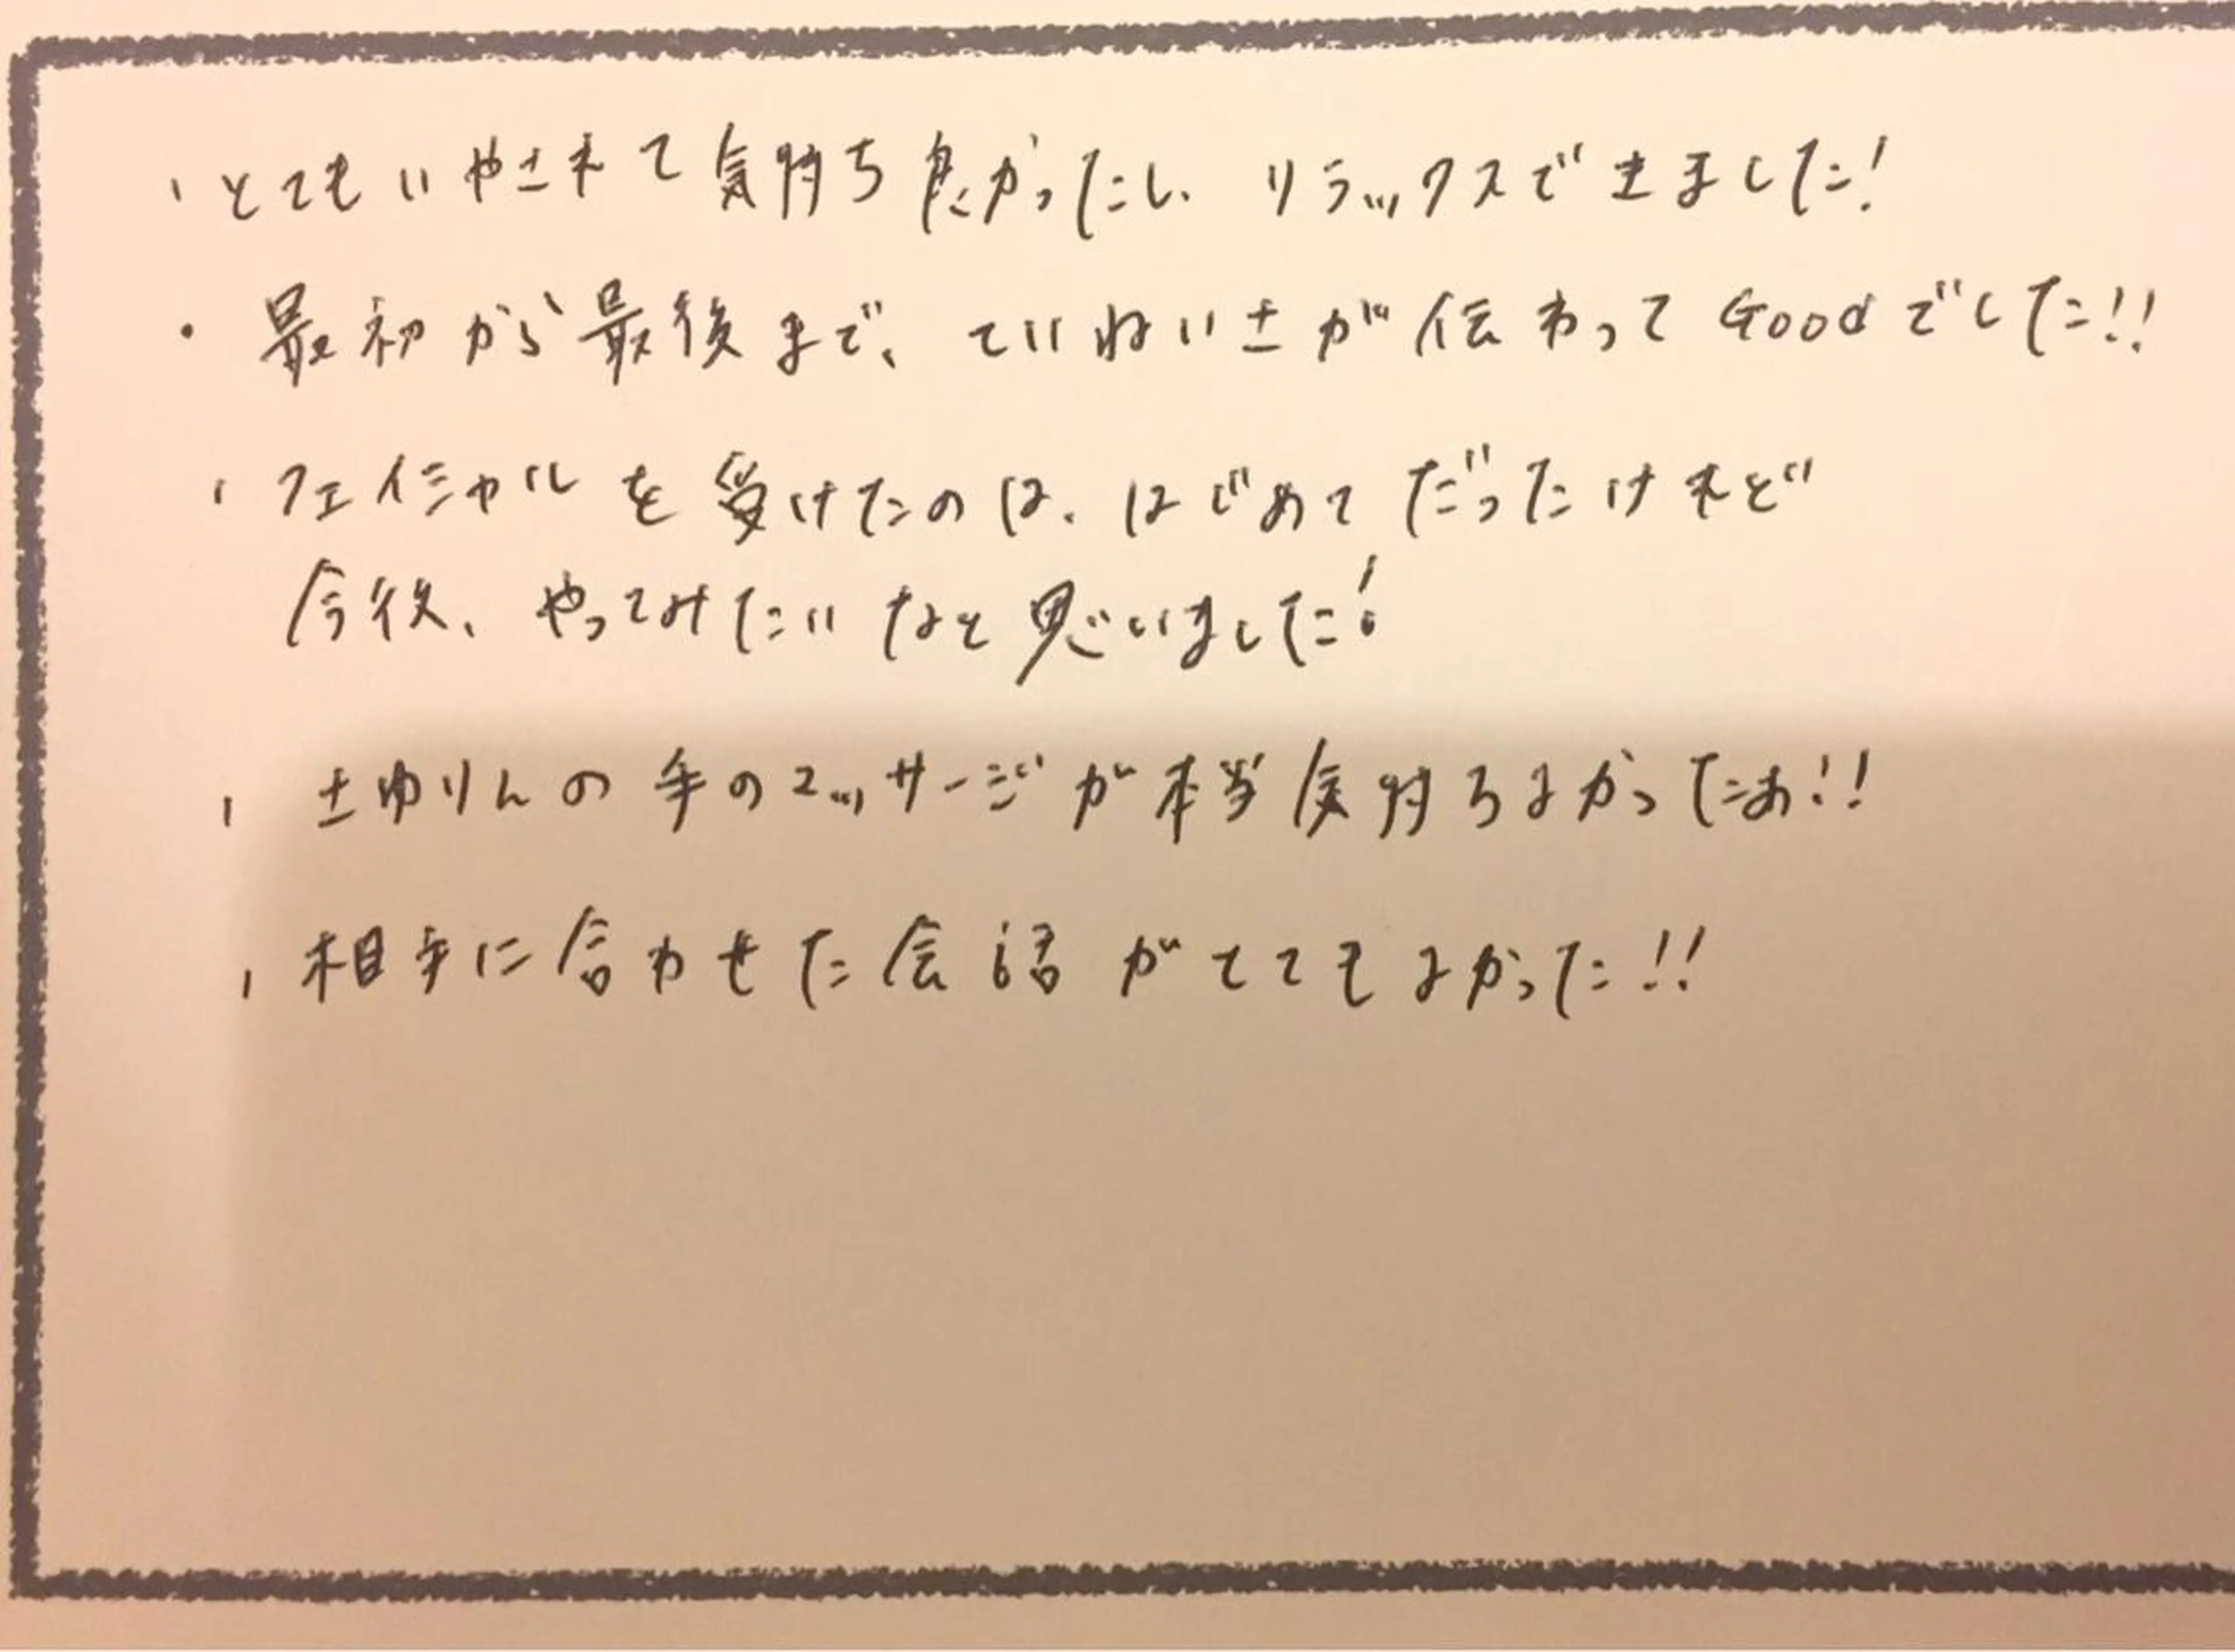 ・とてもいやされて気持ち良かったし、リラックスできました!
・最初から最後まで、ていねいさが伝わってGoodでした!!
・フェイシャルを受けたのは、はじめてだったけれど
今後、やってみたいなと思いました!
・さゆりんの手のマッサージが本当気持ちよかったぁ!!
・相手に合わせた会話がとてもよかった!!